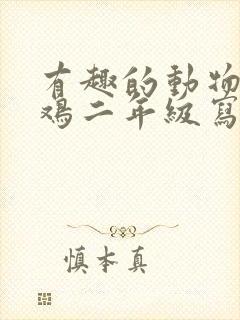 有趣的動物
鴉二年級寫
慎本真